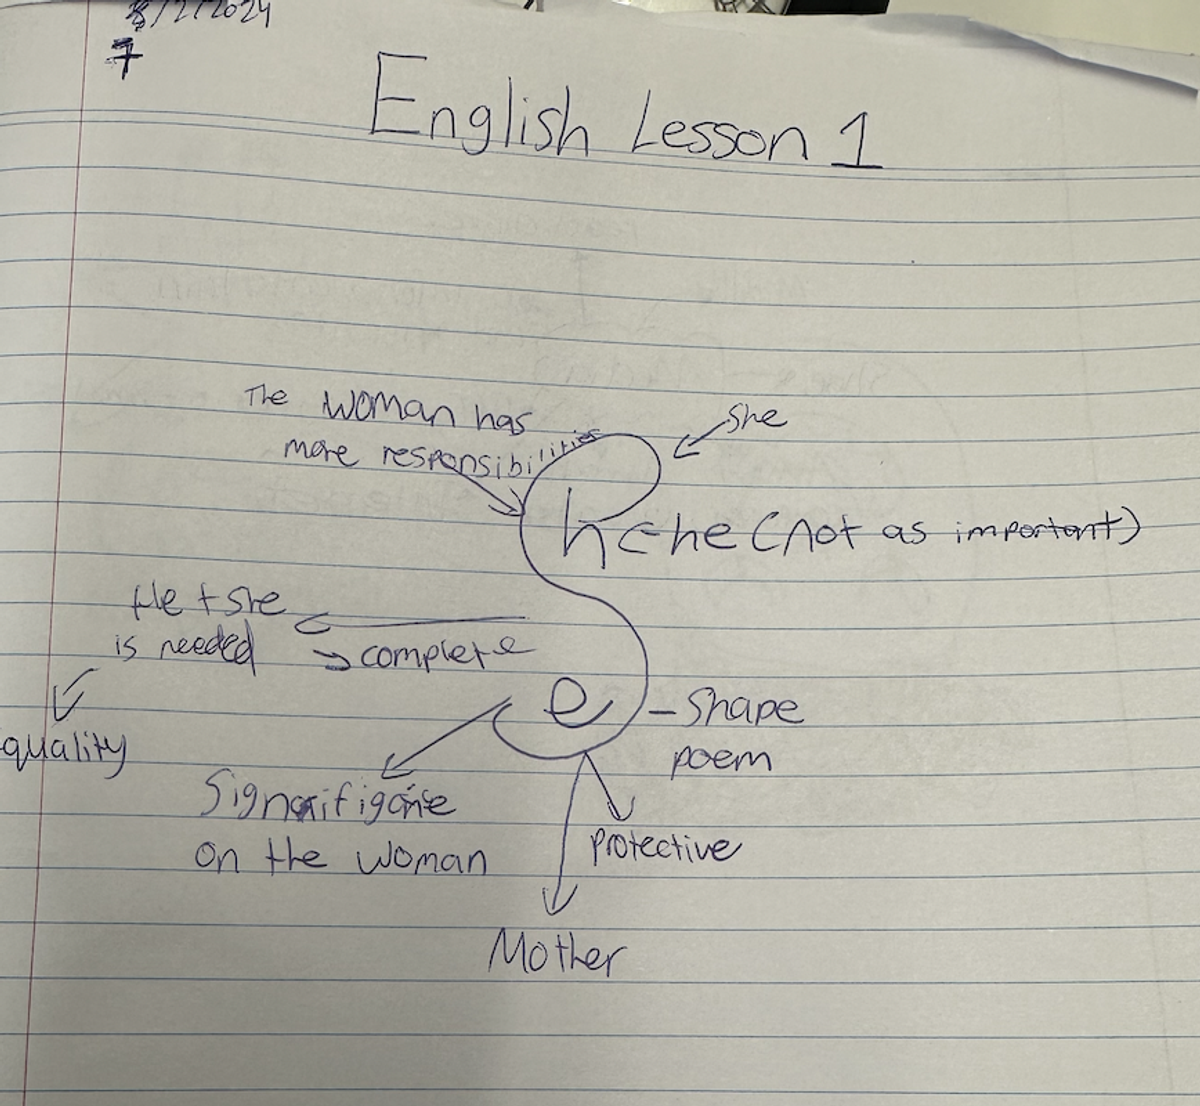 8/2/2024
7
English Lesson 1
The woman has
more responsibilities
she
h
he (not as important)
He + she
is needed
complete
quality
e
- Shape
poem
on the woman
protective
Mother